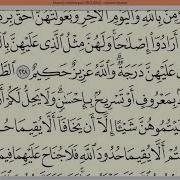 بِٱللَّهِ وَٱلْيَوْمِ ٱلْآخِرِ وَبُعُولَتُهُنَّ أَحَقُّ
أَرَادُوٓا۟ إِصْلَٰحًا وَلَهُنَّ مِثْلُ ٱلَّذِى عَلَيْهِنَّ
عَلَيْهِنَّ دَرَجَةٌ وَٱللَّهُ عَزِيزٌ حَكِيمٌ ٢٢٨
بِمَعْرُوفٍ أَوْ تَسْرِيحٌۢ بِإِحْسَٰنٍ وَلَا يَحِلُّ لَكُمْ أَن
شَيْـًٔا إِلَّآ أَن يَخَافَآ أَلَّا يُقِيمَا
أَلَّا يُقِيمَا حُدُودَ ٱللَّهِ فَلَا جُنَاحَ عَلَيْهِمَا فِيمَا